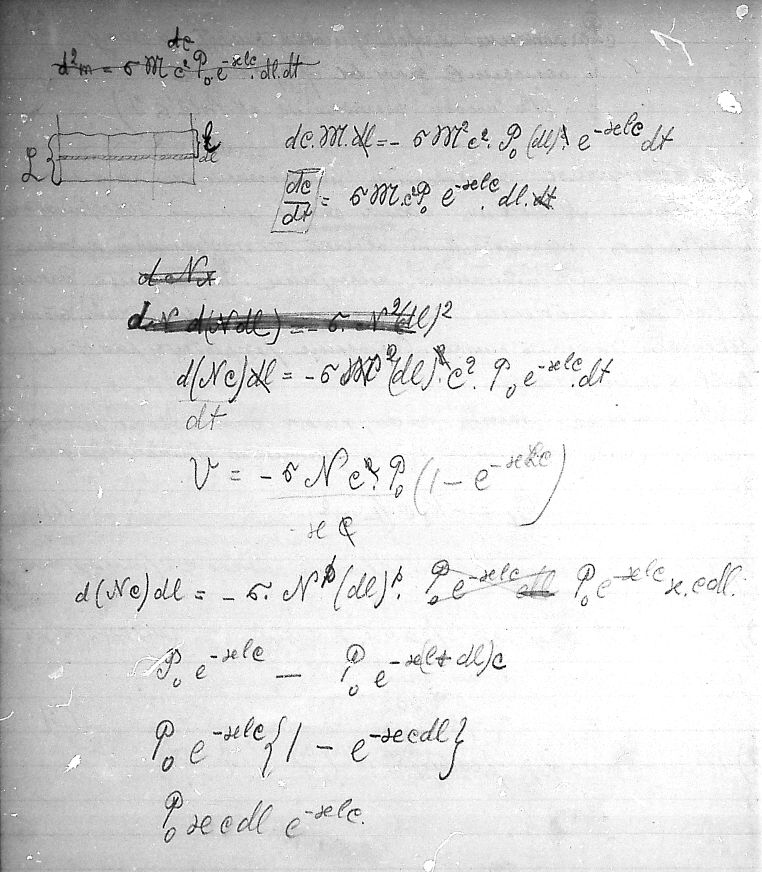 dc
d²m = σ M c² P₀ e^{-ϰlc} · dl · dt
L
l
dl
dc · M · dl = - σ M² c² · P₀ (dl)² · e^{-ϰlc} dt
dc/dt = σ M · c² P₀ e^{-ϰlc} · dl · dt
d N
d N d(N dl) = - σ · N² (dl)²
d(Nc) dl = - σ N² (dl)² · c² · P₀ e^{-ϰlc} · dt
dt
V = - σ N c² · P₀ (1 - e^{-ϰLc})
ϰ c
d(Nc) dl = - σ · N (dl) · P₀ e^{-ϰlc} dl P₀ e^{-ϰlc} ϰ · c dl.
P₀ e^{-ϰlc} — P₀ e^{-ϰ(l + dl)c}
P₀ e^{-ϰlc} {1 - e^{-ϰcdl}}
P₀ ϰcdl e^{-ϰlc}.